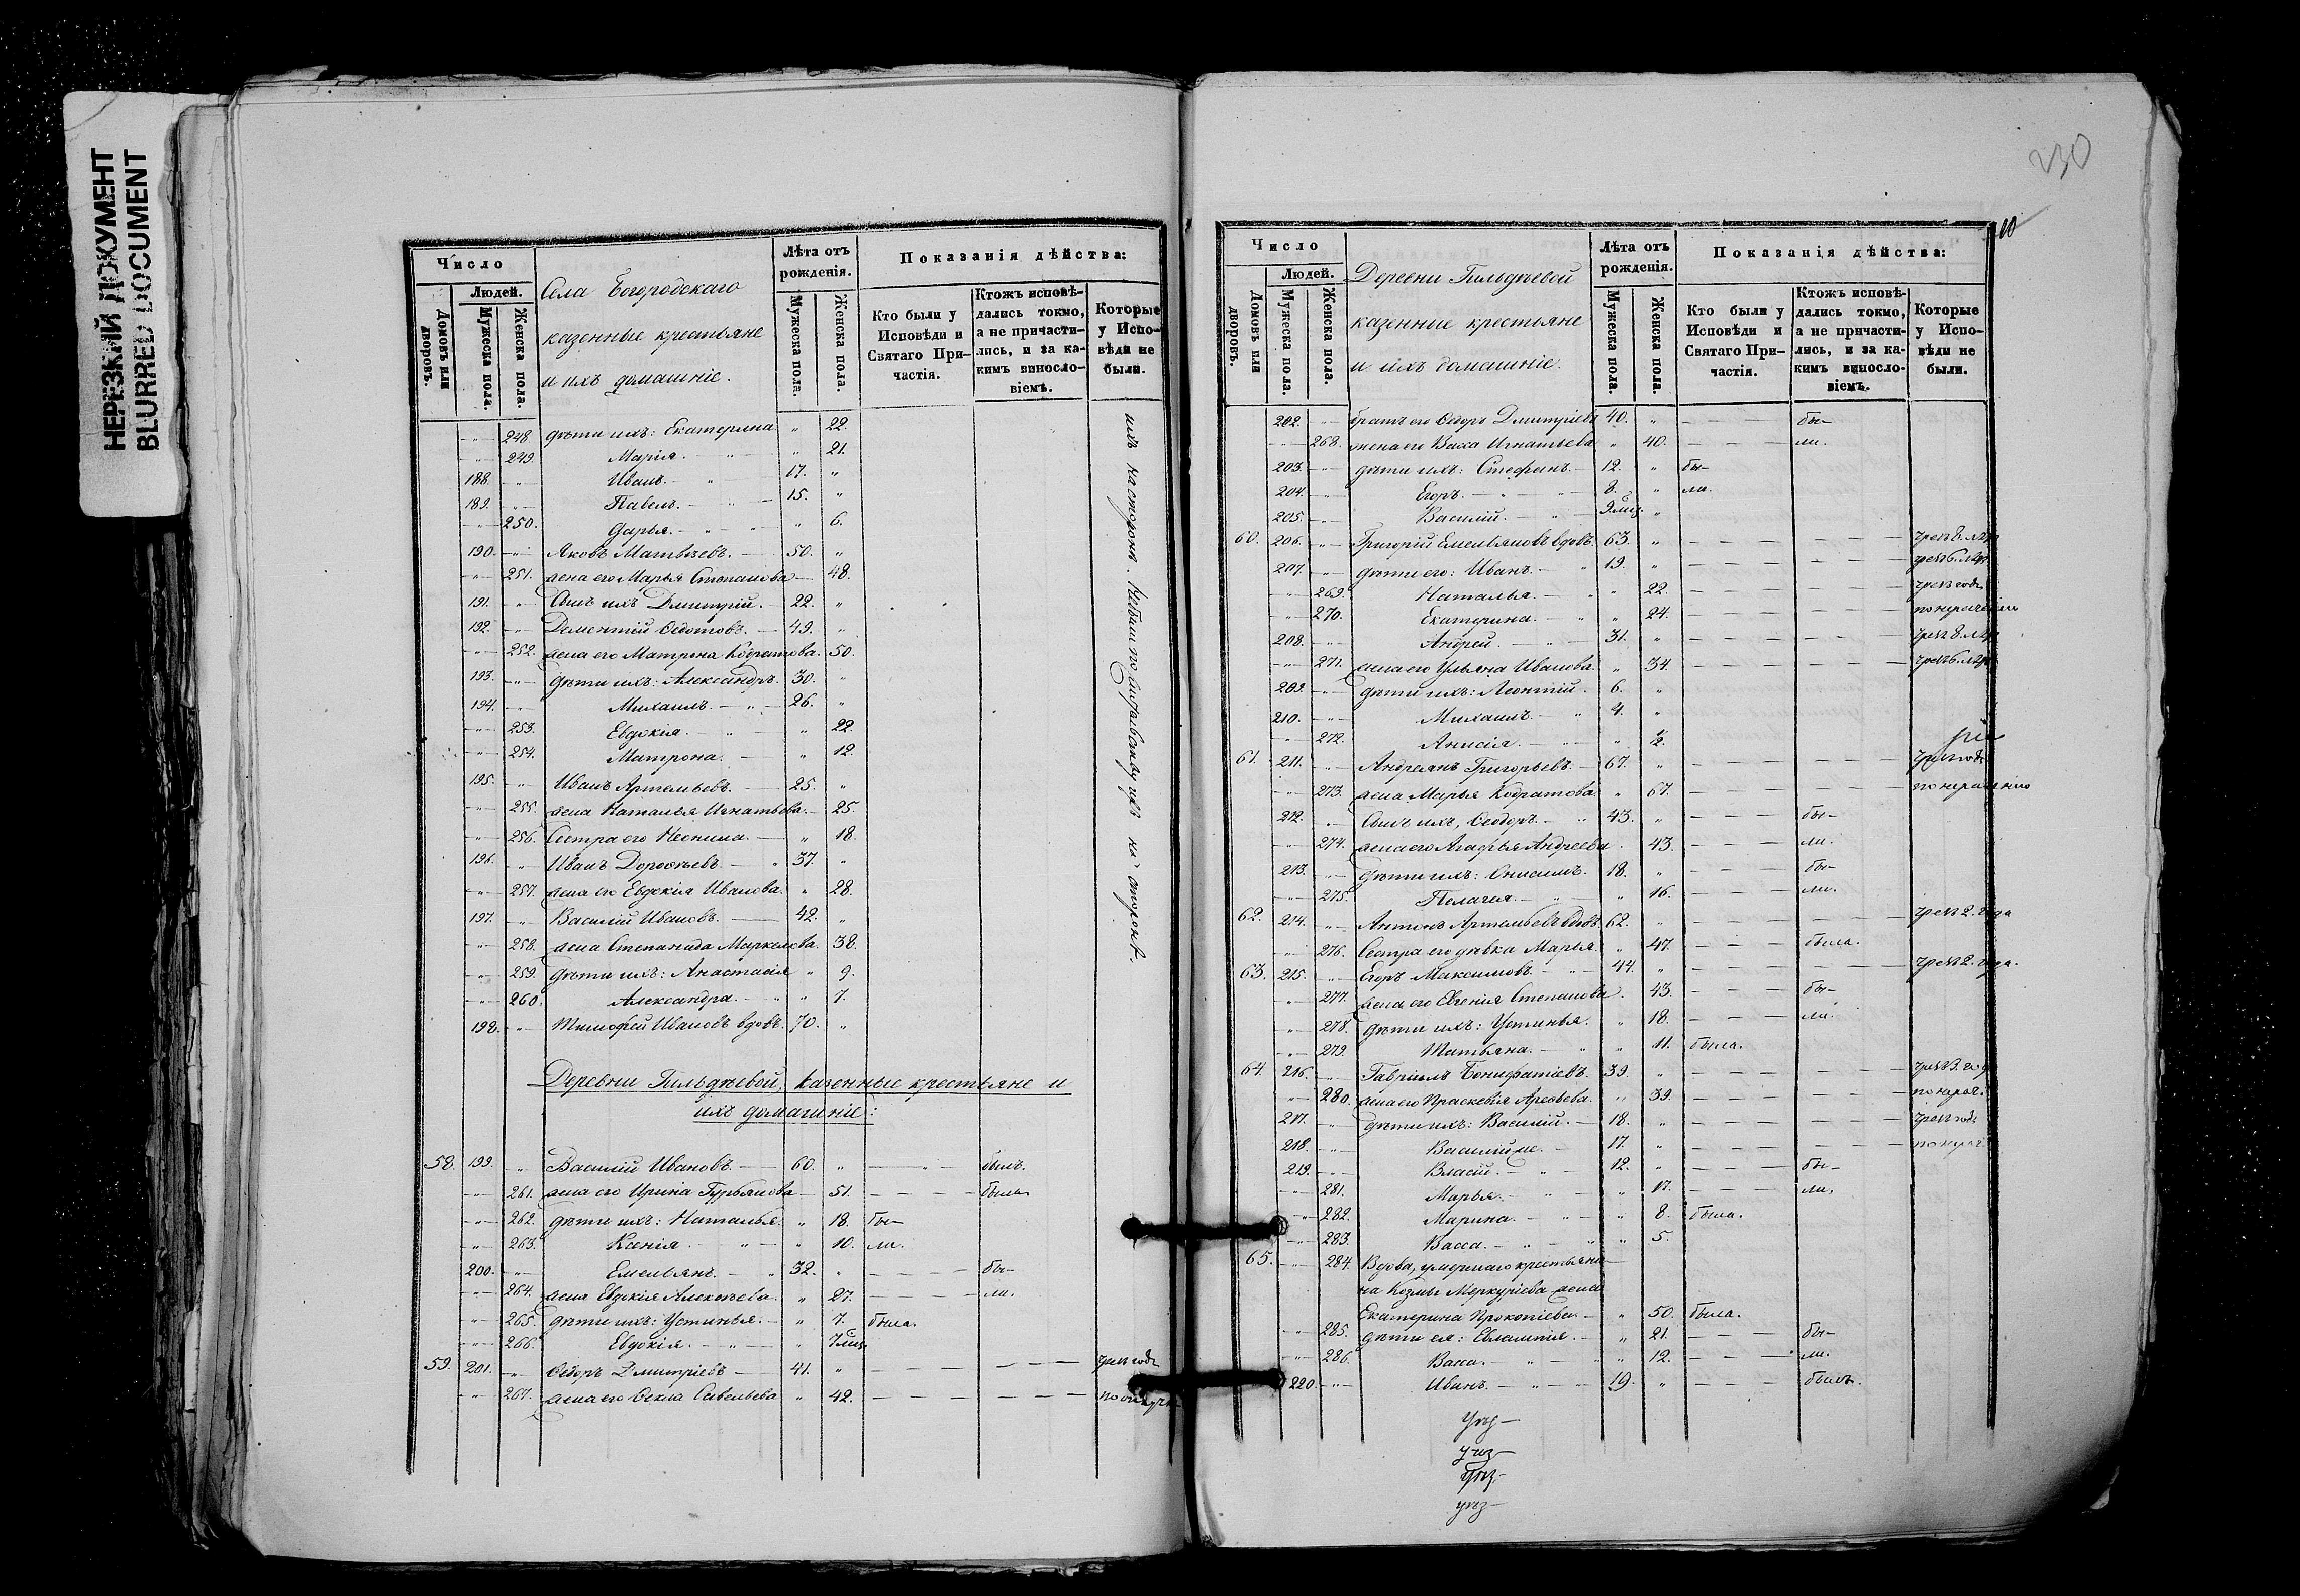 НЕРЕЗКИЙ ДОКУМЕНТ
BLURRED DOCUMENT
Число
Людей.
Домовъ или дворовъ.
Мужеска пола.
Женска пола.
Села Богородскаго
казенные крестьяне
и ихъ домашніе.
Лѣта отъ рожденія.
Мужеска пола.
Женска пола.
Показанія дѣйства:
Кто были у Исповѣди и Святаго Причастія.
Ктожъ исповѣдались токмо, а не причастились, и за какимъ винословіемъ.
Которые у Исповѣди не были.
248. дѣти ихъ: Екатерина " 22.
249. Марія. " 21.
188. Иванъ. 17. "
189. Павелъ. 15. "
250. Дарья. " 6.
190. Яковъ Матвѣевъ. 50. "
251. жена его Марья Степанова 48.
191. Сынъ ихъ Дмитрій. 22. "
192. Дементій Ѳедотовъ. 49. "
252. жена его Матрона Кодратова. 50.
193. дѣти ихъ: Александръ. 30. "
194. Михаилъ. 26. "
253. Евдокія. " 22.
254. Матрона. " 12.
195. Иванъ Артемьевъ. 25. "
255. жена Наталья Игнатьева. 25.
256. Сестра его Неонила. " 18.
196. Иванъ Дороѳеевъ. 37. "
257. жена его Евдокія Иванова. " 28.
197. Василій Ивановъ. 42. "
258. жена Степанида Маркелова. 38.
259. дѣти ихъ: Анастасія " 9.
260. Александра. " 7.
198. Тимофей Ивановъ вдовъ. 70. "
на сторонѣ.
Деревни Гильдѣевой, казенные крестьяне и
ихъ домашніе:
58. 199. Василій Ивановъ. 60. " былъ.
261. жена его Ирина Гурьянова 51. была
262. дѣти ихъ: Наталья. " 18. бы-
263. Ксенія. " 10. ли.
200. Емельянъ. 32. " бы-
264. жена Евдокія Алексѣева. " 27. ли.
265. дѣти ихъ: Устинья. " 7. была.
266. Евдокія. " 7 мѣс.
59. 201. Ѳедоръ Дмитріевъ 41. "
267. жена его Ѳекла Савельева " 42.
230
10
Число
Людей.
Домовъ или дворовъ.
Мужеска пола.
Женска пола.
Деревни Гильдѣевой
казенные крестьяне
и ихъ домашніе.
Лѣта отъ рожденія.
Мужеска пола.
Женска пола.
Показанія дѣйства:
Кто были у Исповѣди и Святаго Причастія.
Ктожъ исповѣдались токмо, а не причастились, и за какимъ винословіемъ.
Которые у Исповѣди не были.
202. братъ его Ѳедоръ Дмитріевъ 40. " бы-
268. жена его Васса Игнатьева " 40. ли.
203. дѣти ихъ: Стефанъ. 12. " бы-
204. Егоръ. 8. " ли.
205. Василій. 9 мѣс. "
60. 206. Григорій Емельяновъ вдовъ. 63. " чрезъ 8. лѣтъ
207. дѣти его: Иванъ. 19. " чрезъ 6. лѣтъ
269. Наталья. " 22. чрезъ годъ
270. Екатерина. " 24. по нераченію
208. Андрей. 31. " чрезъ 8. лѣтъ
271. жена его Ульяна Иванова. " 34. чрезъ 6. лѣтъ
209. дѣти ихъ: Леонтій. 6. "
210. Михаилъ. 4. "
272. Анисія. " ½.
61. 211. Андреянъ Григорьевъ. 67. " чрезъ годъ
273. жена Марья Кодратова. " 67. по нераченію
212. Сынъ ихъ, Ѳеодоръ. 43. " бы-
274. жена его Агафья Андреева. 43. ли.
213. дѣти ихъ: Онисимъ. 18. " бы-
275. Пелагея. " 16. ли.
62. 214. Антонъ Артемьевъ вдовъ 62. " чрезъ 2. года
276. Сестра его дѣвка Марья. " 47. была.
63. 215. Егоръ Максимовъ. 44. " чрезъ 2. года.
277. жена его Евгенія Степанова. 43. бы-
278. дѣти ихъ: Устинья. " 18. ли.
279. Татьяна. " 11. была.
64. 216. Гавріилъ Бонифатіевъ. 39. " чрезъ 3. год
280. жена его Праскевія Арефьева. " 39. по нерач.
217. дѣти ихъ: Василій. 18. " чрезъ годъ
218. Василій же. 17. " по нерач
219. Власій. 12. " бы-
281. Марья. " 17. ли.
282. Марина. " 8. была.
283. Васса. " 5.
65. 284. Вдова, умершаго крестьяни-
на Козьмы Меркуріева жена
Екатерина Прокопіева. " 50. была.
285. дѣти ея: Евлампія. " 21. бы-
286. Васса. " 12. ли.
220. Иванъ. 19. " былъ.